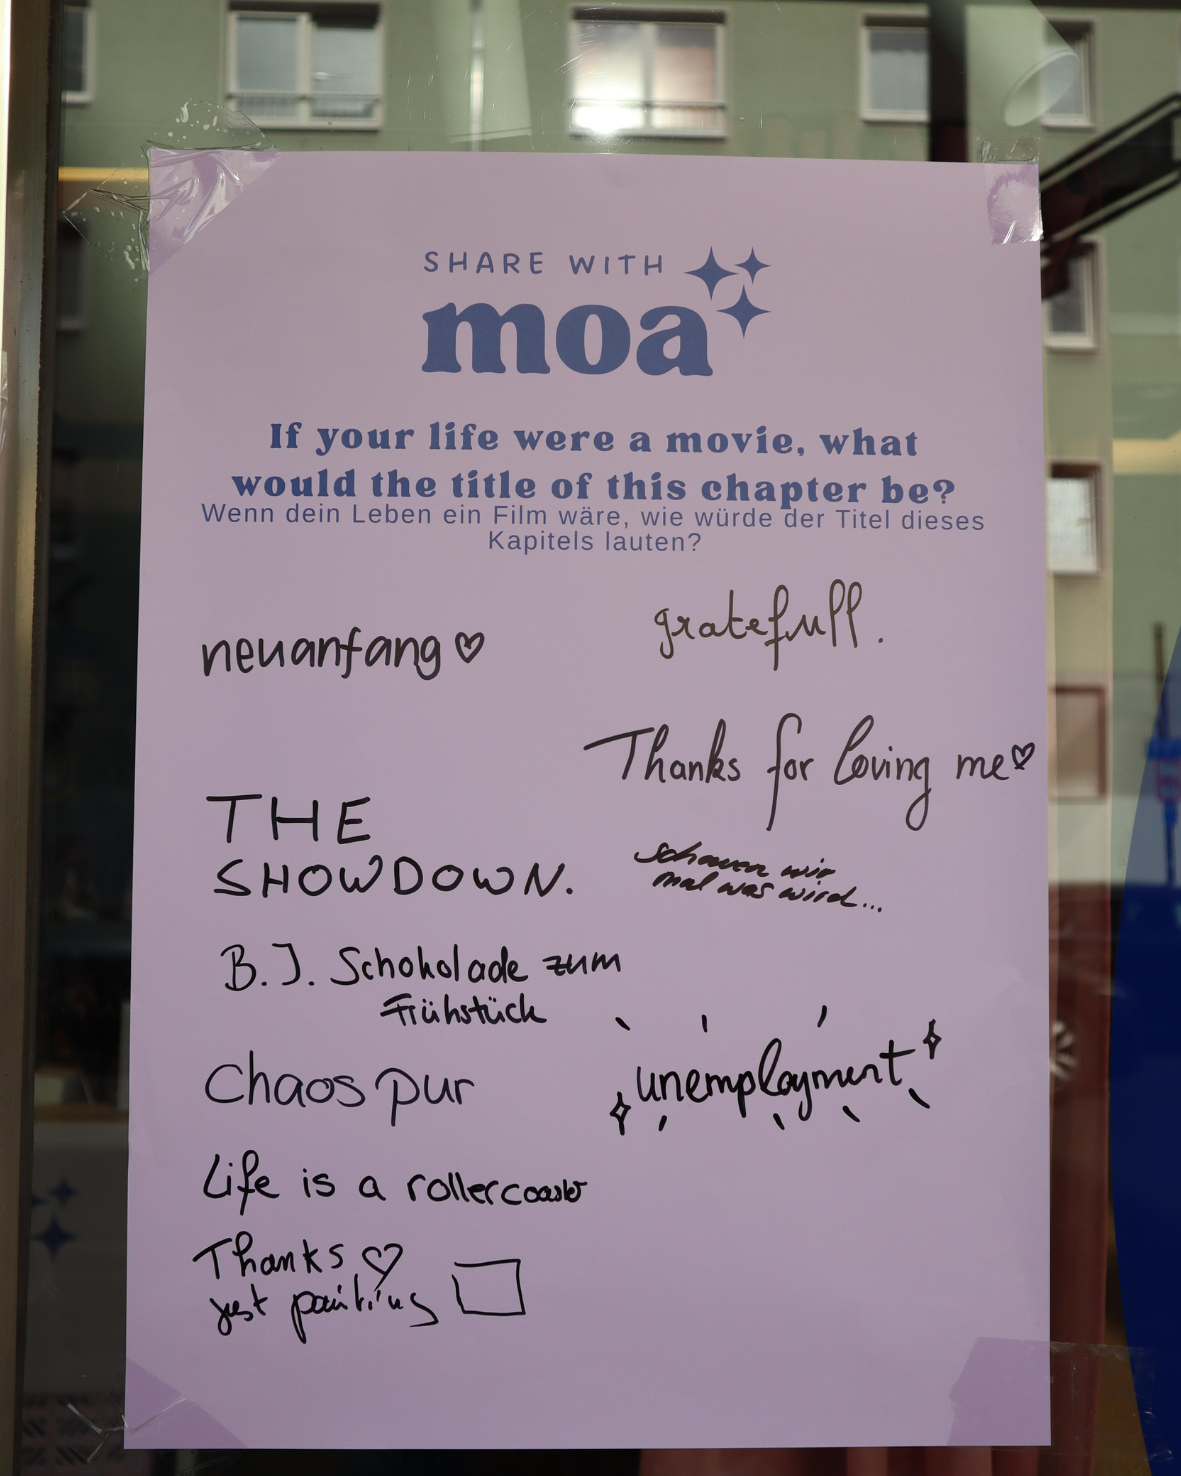 SHARE WITH
moa
If your life were a movie, what
would the title of this chapter be?
Wenn dein Leben ein Film wäre, wie würde der Titel dieses
Kapitels lauten?
neuanfang
gratefull.
Thanks for loving me
THE
SHOWDOWN.
schauen wir
mal was wird...
B.J. Schokolade zum
Frühstück
Chaos pur
unemployment
Life is a rollercoaster
Thanks
just painting